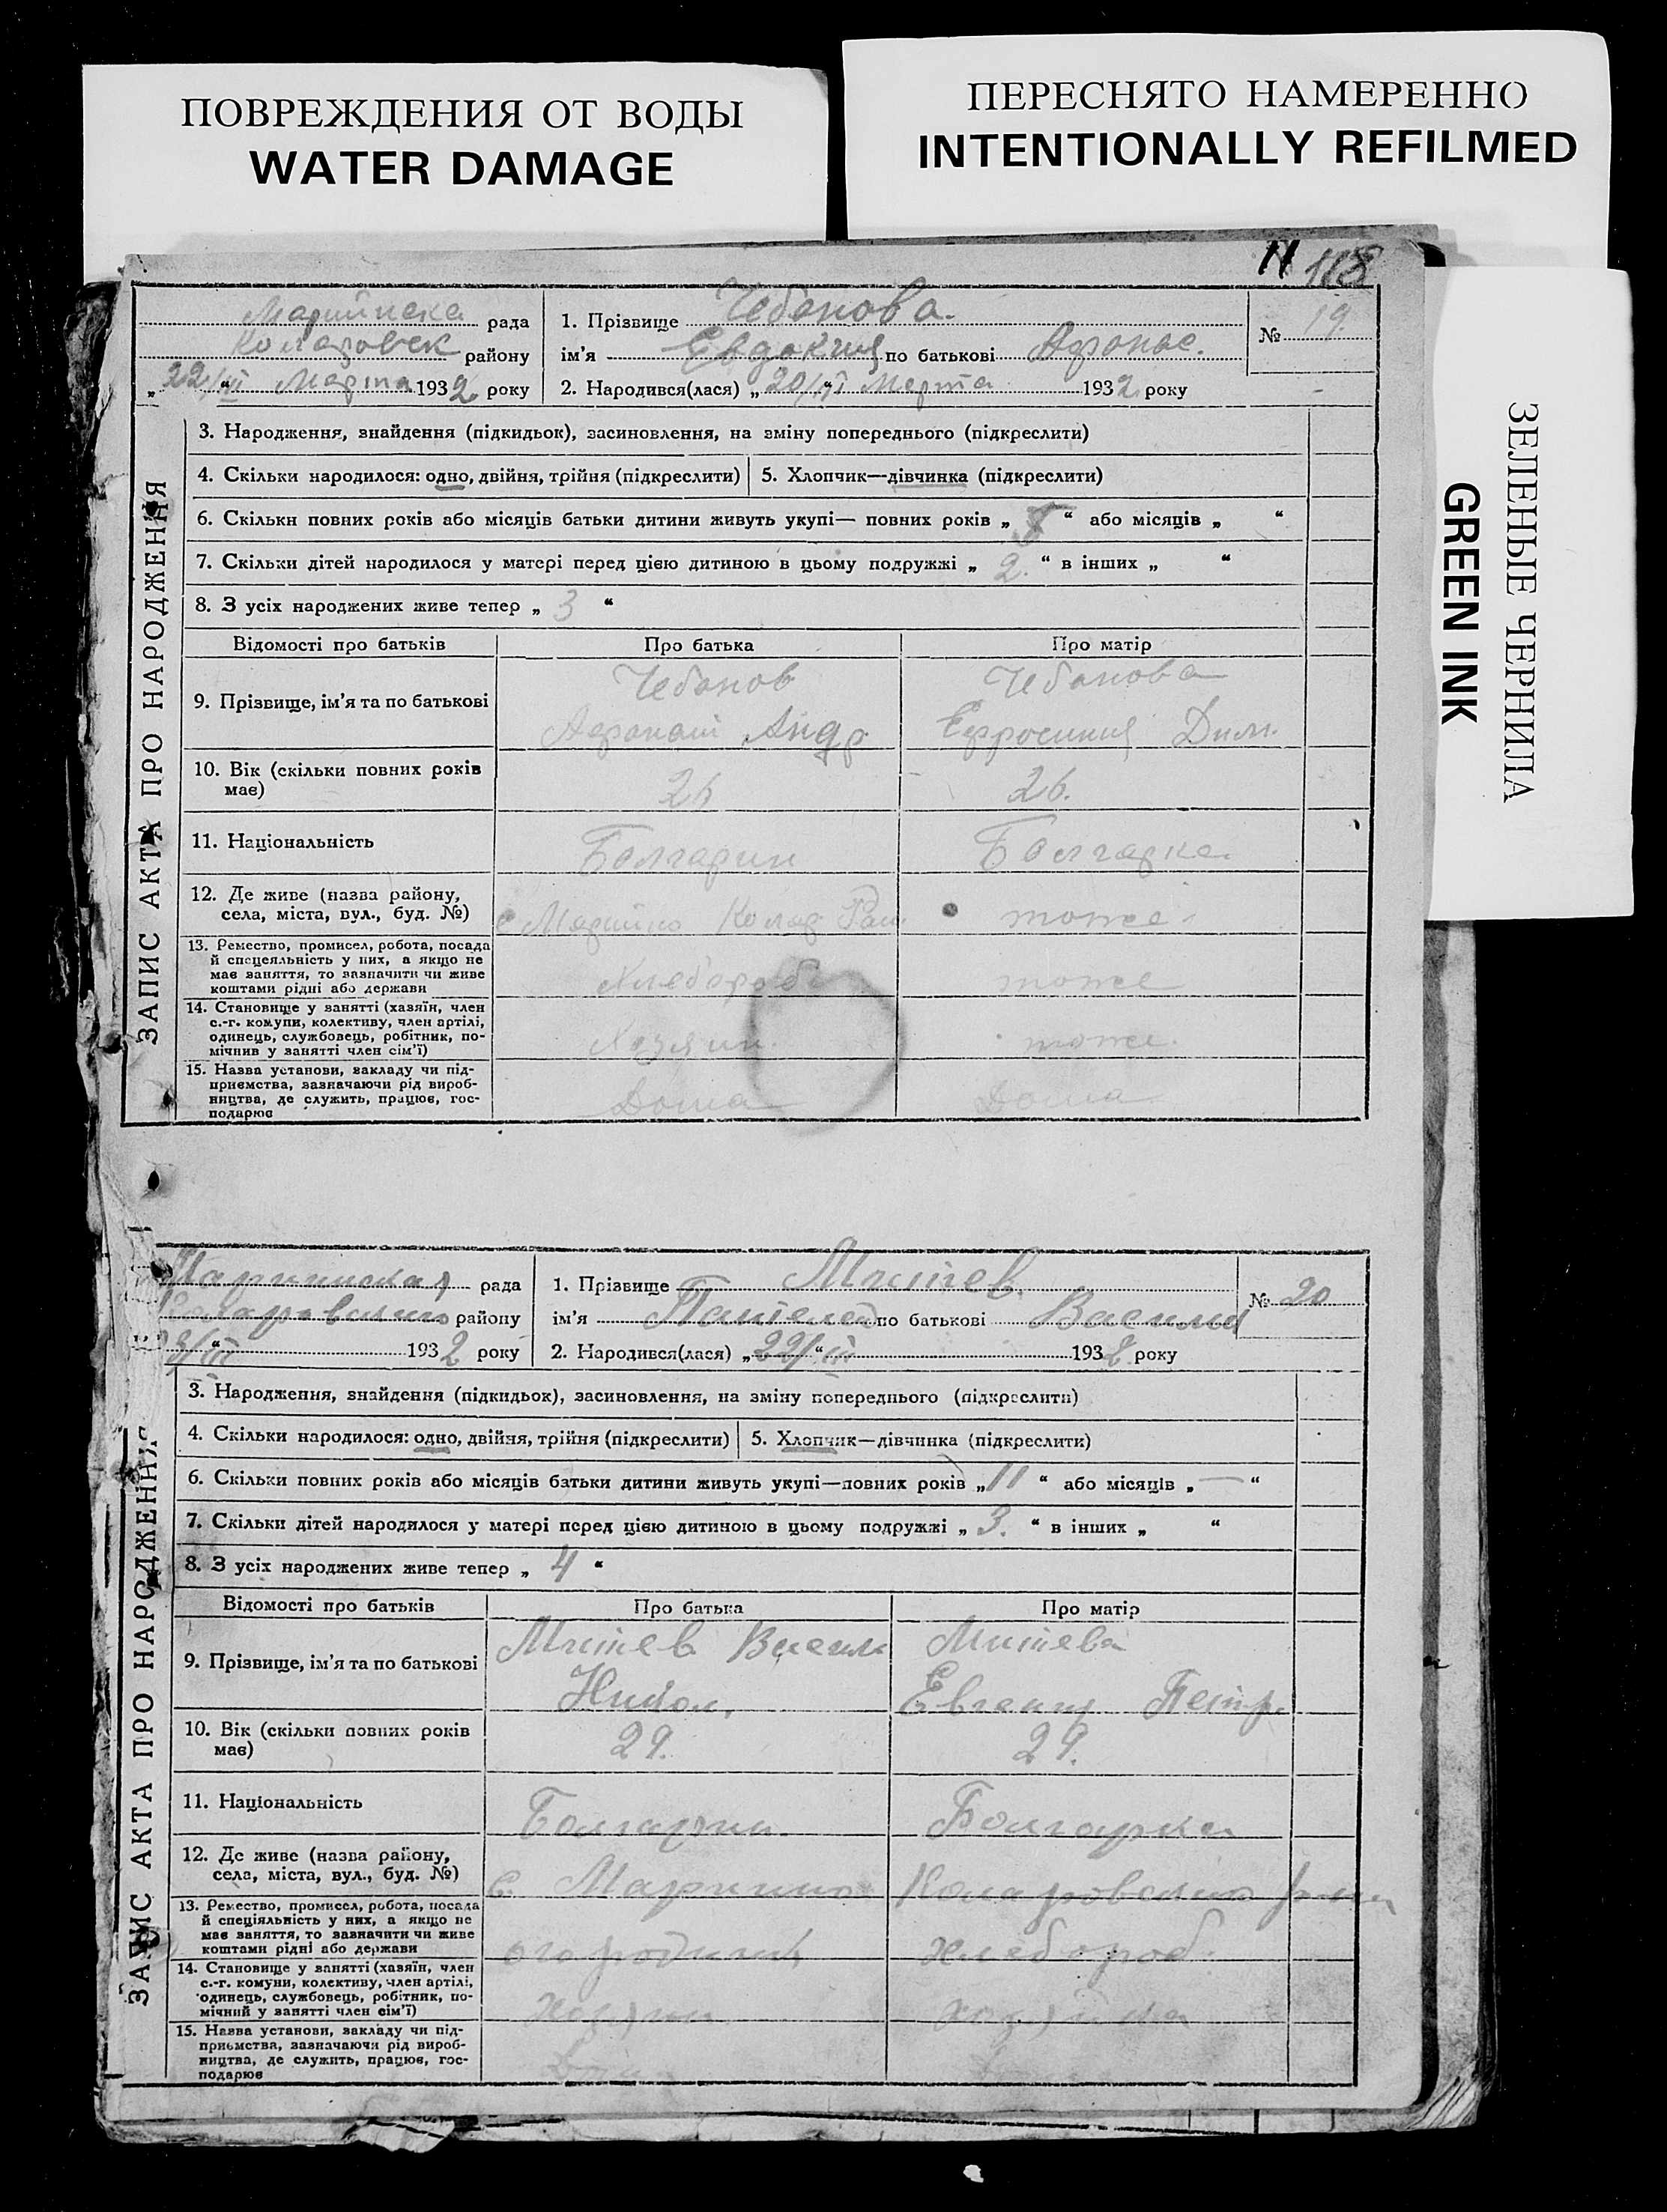 ПОВРЕЖДЕНИЯ ОТ ВОДЫ
WATER DAMAGE
ПЕРЕСНЯТО НАМЕРЕННО
INTENTIONALLY REFILMED
ЗЕЛЕНЫЕ ЧЕРНИЛА
GREEN INK
N 118
ЗАПИС АКТА ПРО НАРОДЖЕННЯ
Марийнска рада
Коларовск району
„22/III“ Марта 1932 року
1. Прізвище Чебанова.
ім'я Евдокия по батькові Афанас.
№ 19.
2. Народився(лася) „20/III“ Марта 1932 року
3. Народження, знайдення (підкидьок), засиновлення, на зміну попереднього (підкреслити)
4. Скільки народилося: одно, двійня, трійня (підкреслити) 5. Хлопчик—дівчинка (підкреслити)
6. Скільки повних років або місяців батьки дитини живуть укупі— повних років „ “ або місяців „ “
7. Скільки дітей народилося у матері перед цією дитиною в цьому подружжі „ 2. “ в інших „ “
8. З усіх народжених живе тепер „ 3 “
Відомості про батьків Про батька Про матір
9. Прізвище, ім'я та по батькові
Чебанов Чебанова
Афанаси Андр Ефросиния Дим.
10. Вік (скільки повних років має) 26 26.
11. Національність Болгарин Болгарка
12. Де живе (назва району, села, міста, вул., буд. №) с Марийно Колар Рай тоже
13. Ремество, промисел, робота, посада
й спецеяльність у них, а якщо не
має заняття, то зазначити чи живе
коштами рідні або держави
Хлебороб тоже
14. Становище у занятті (хазяїн, член
с.-г. комуни, колективу, член артілі,
одинець, службовець, робітник, по-
мічнив у занятті член сім'ї)
Хозяин. тоже.
15. Назва установи, закладу чи під-
приємства, зазначаючи рід вироб-
ництва, де служить, працює, гос-
подарює
Дома Дома
ЗАПИС АКТА ПРО НАРОДЖЕННЯ
Мариинская рада
Коларовского району
/III“ 1932 року
1. Прізвище Митев.
ім'я Пантелей по батькові Василий
№ 20
2. Народився(лася) „22/“III 1932 року
3. Народження, знайдення (підкидьок), засиновлення, на зміну попереднього (підкреслити)
4. Скільки народилося: одно, двійня, трійня (підкреслити) 5. Хлопчик—дівчинка (підкреслити)
6. Скільки повних років або місяців батьки дитини живуть укупі—повних років „ 11 “ або місяців „ — “
7. Скільки дітей народилося у матері перед цією дитиною в цьому подружжі „ 3. “ в інших „ “
8. З усіх народжених живе тепер „ 4 “
Відомості про батьків Про батька Про матір
9. Прізвище, ім'я та по батькові
Митев Васили Митева
Никол. Евгения Петр.
10. Вік (скільки повних років має) 29. 29.
11. Національність Болгарин. Болгарка
12. Де живе (назва району, села, міста, вул., буд. №) с. Мариино Коларовского р-на
13. Ремество, промисел, робота, посада
й спеціяльність у них, а якщо не
має заняття, то зазначити чи живе
коштами рідні або держави
огородник хлебороб.
14. Становище у занятті (хазяїн, член
с.-г. комуни, колективу, член артілі,
одинець, службовець, робітник, по-
мічний у занятті член сім'ї)
Хозяин хозяйка
15. Назва установи, закладу чи під-
приємства, зазначаючи рід вироб-
ництва, де служить, працює, гос-
подарює